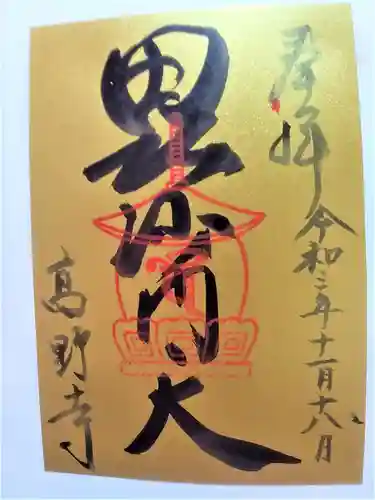 奉拝 令和二年十一月十八日
毘沙門天
高野寺